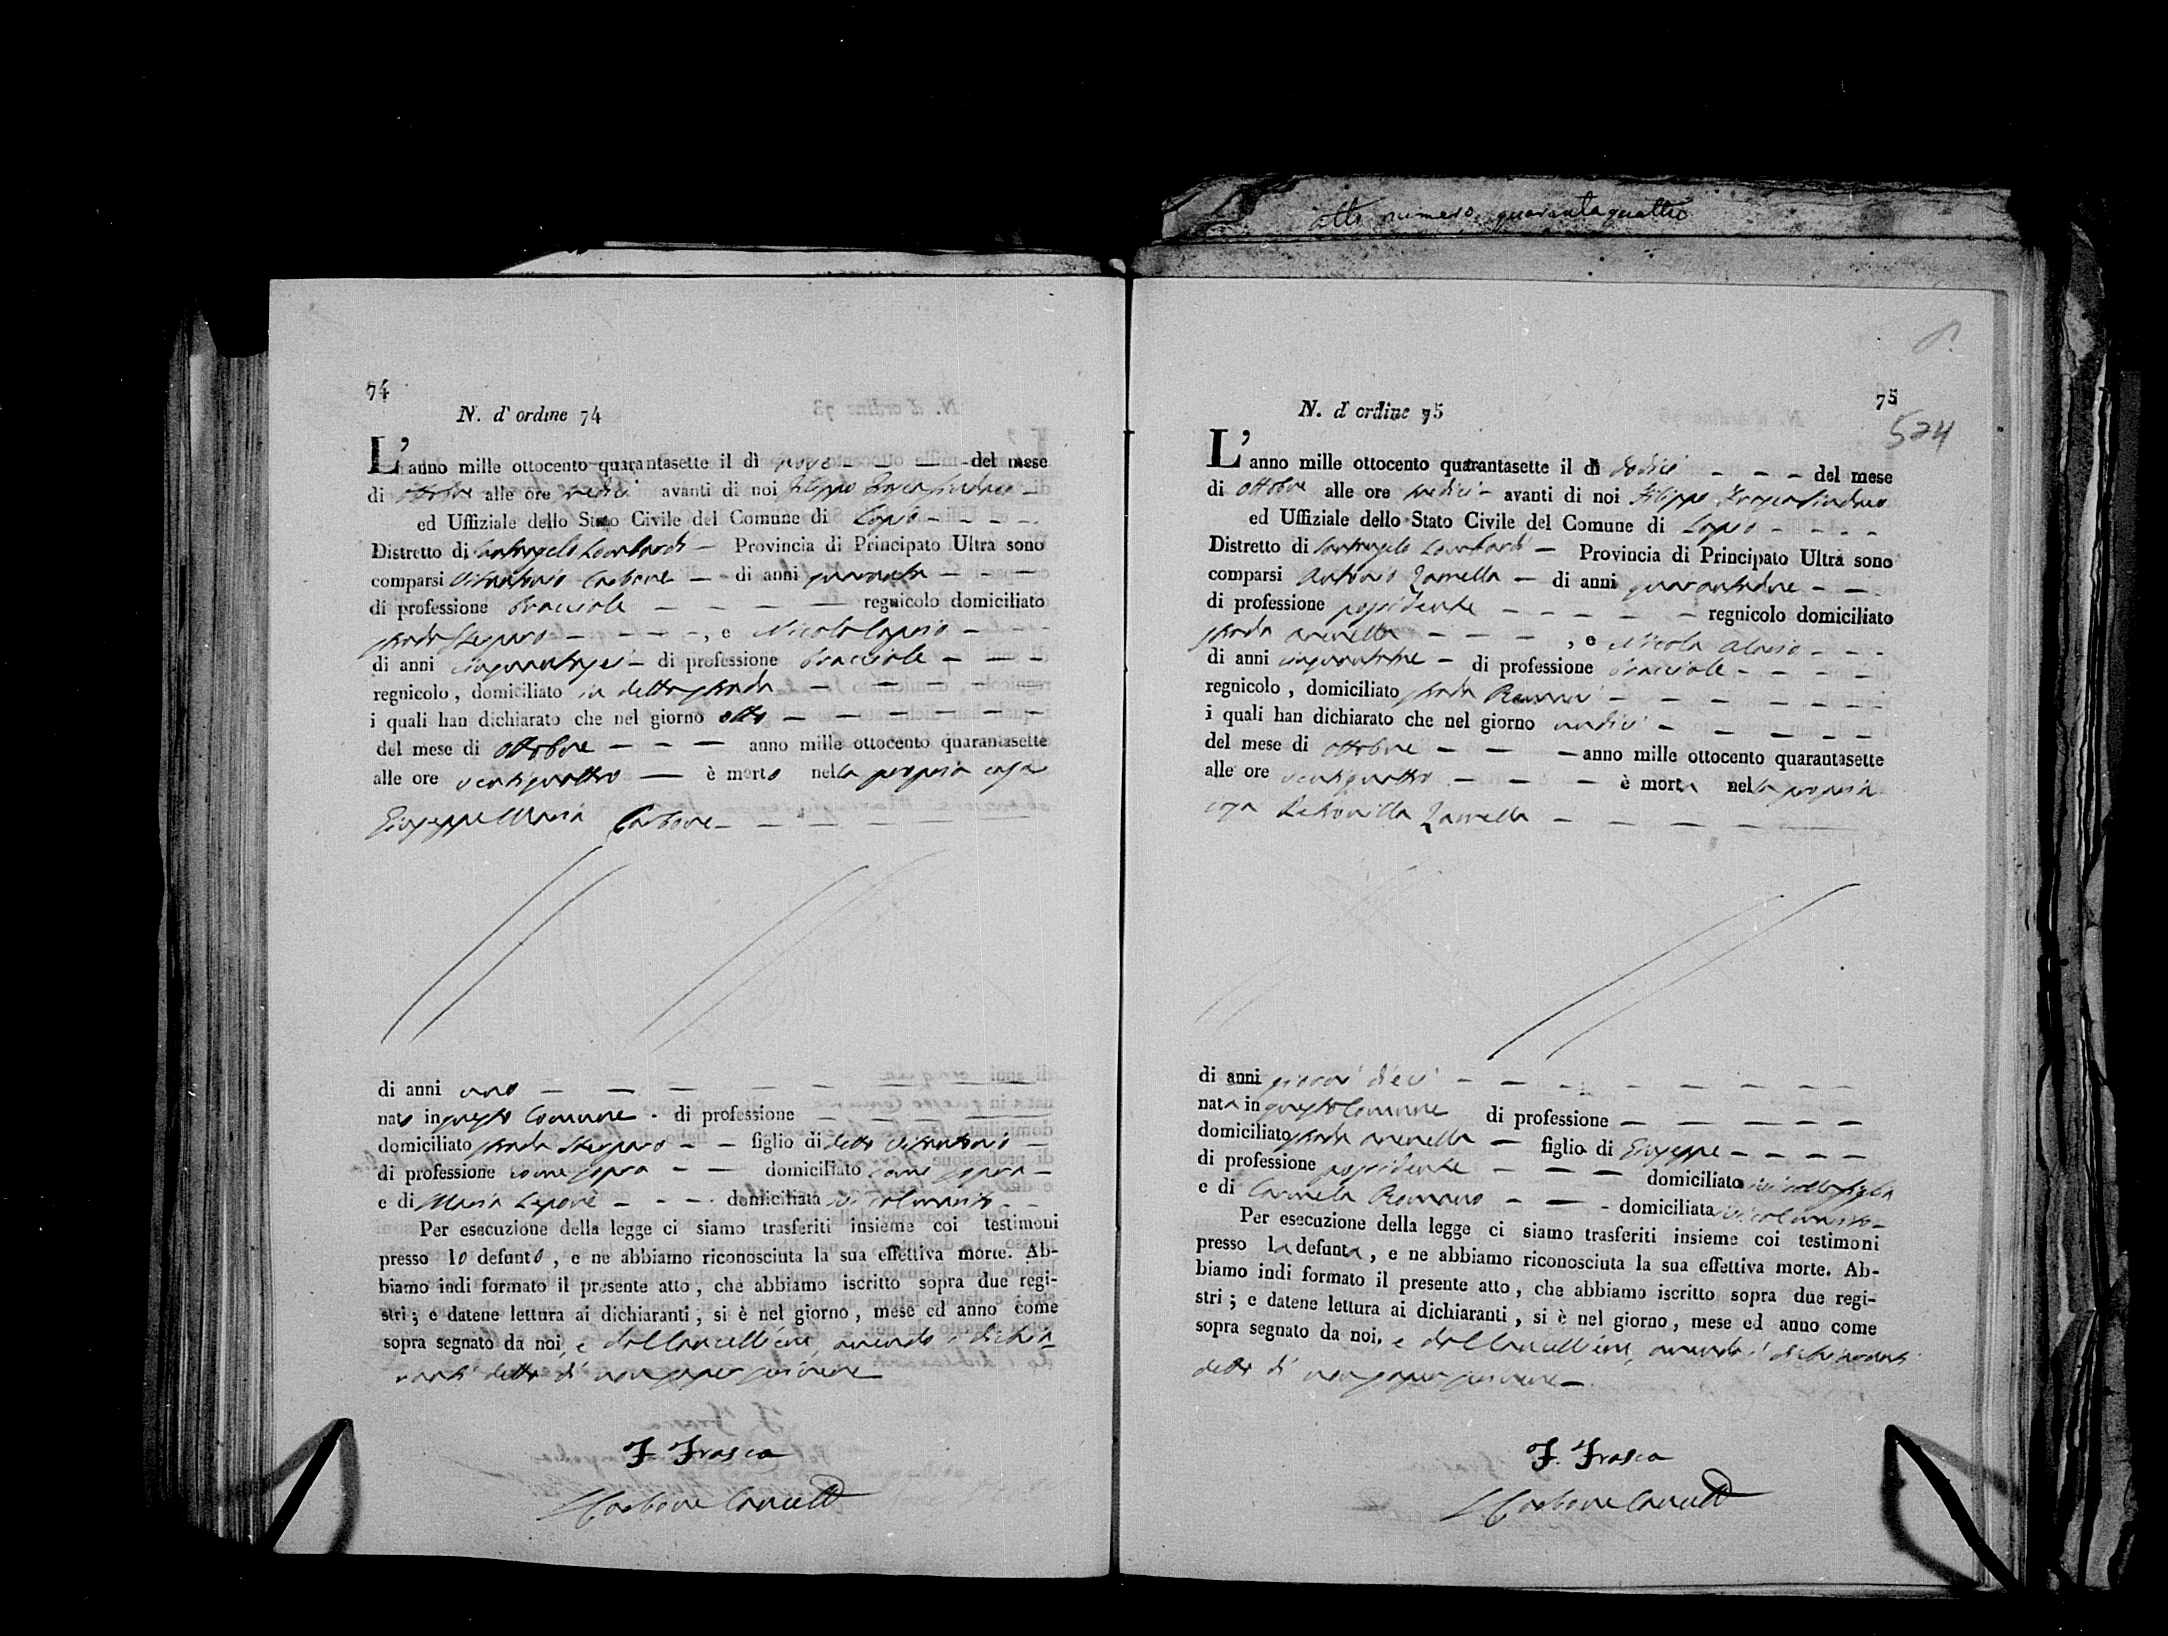 atto numero quarantaquattro
74
N. d' ordine 74
L'anno mille ottocento quarantasette il dì nove del mese
di ottobre alle ore tredici avanti di noi Filippo Frasca Sindaco
ed Uffiziale dello Stato Civile del Comune di Lapio
Distretto di Santangelo Lombardi Provincia di Principato Ultra sono
comparsi Vitantonio Carbone di anni quaranta
di professione bracciale regnicolo domiciliato
strada , e Nicola
di anni di professione bracciale
regnicolo , domiciliato in detta strada
i quali han dichiarato che nel giorno otto
del mese di ottobre anno mille ottocento quarantasette
alle ore ventiquattro è morto nella propria casa
Giuseppe Maria Carbone
di anni uno
nato in questo Comune di professione
domiciliato strada figlio di detto Vitantonio
di professione come sopra domiciliato come sopra
e di Maria Lepore domiciliata ivi col marito
Per esecuzione della legge ci siamo trasferiti insieme coi testimoni
presso lo defunto , e ne abbiamo riconosciuta la sua effettiva morte. Ab-
biamo indi formato il presente atto , che abbiamo iscritto sopra due regi-
stri ; e datene lettura ai dichiaranti , si è nel giorno , mese ed anno come
sopra segnato da noi, e dal Cancelliere, avendo i dichia-
ranti detto di non saper scrivere
F. Frasca
Carbone Cancell
75
574
N. d' ordine 75
L'anno mille ottocento quarantasette il dì dodici del mese
di ottobre alle ore tredici avanti di noi Filippo Frasca Sindaco
ed Uffiziale dello Stato Civile del Comune di Lapio
Distretto di Santangelo Lombardi Provincia di Principato Ultra sono
comparsi Antonio Zarrella di anni quarantadue
di professione possidente regnicolo domiciliato
strada arenella , e Nicola
di anni cinquantatre di professione bracciale
regnicolo , domiciliato strada Romani
i quali han dichiarato che nel giorno undici
del mese di ottobre anno mille ottocento quarantasette
alle ore ventiquattro è morta nella propria
casa Petronilla Zarrella
di anni giorni dieci
nata in questo Comune di professione
domiciliato strada arenella figlia di Giuseppe
di professione possidente domiciliato ivi colla figlia
e di Carmela Romano domiciliata ivi col marito
Per esecuzione della legge ci siamo trasferiti insieme coi testimoni
presso la defunta , e ne abbiamo riconosciuta la sua effettiva morte. Ab-
biamo indi formato il presente atto , che abbiamo iscritto sopra due regi-
stri ; e datene lettura ai dichiaranti , si è nel giorno , mese ed anno come
sopra segnato da noi, e dal Cancelliere, avendo i dichiaranti
detto di non saper scrivere
F. Frasca
Carbone Cancell